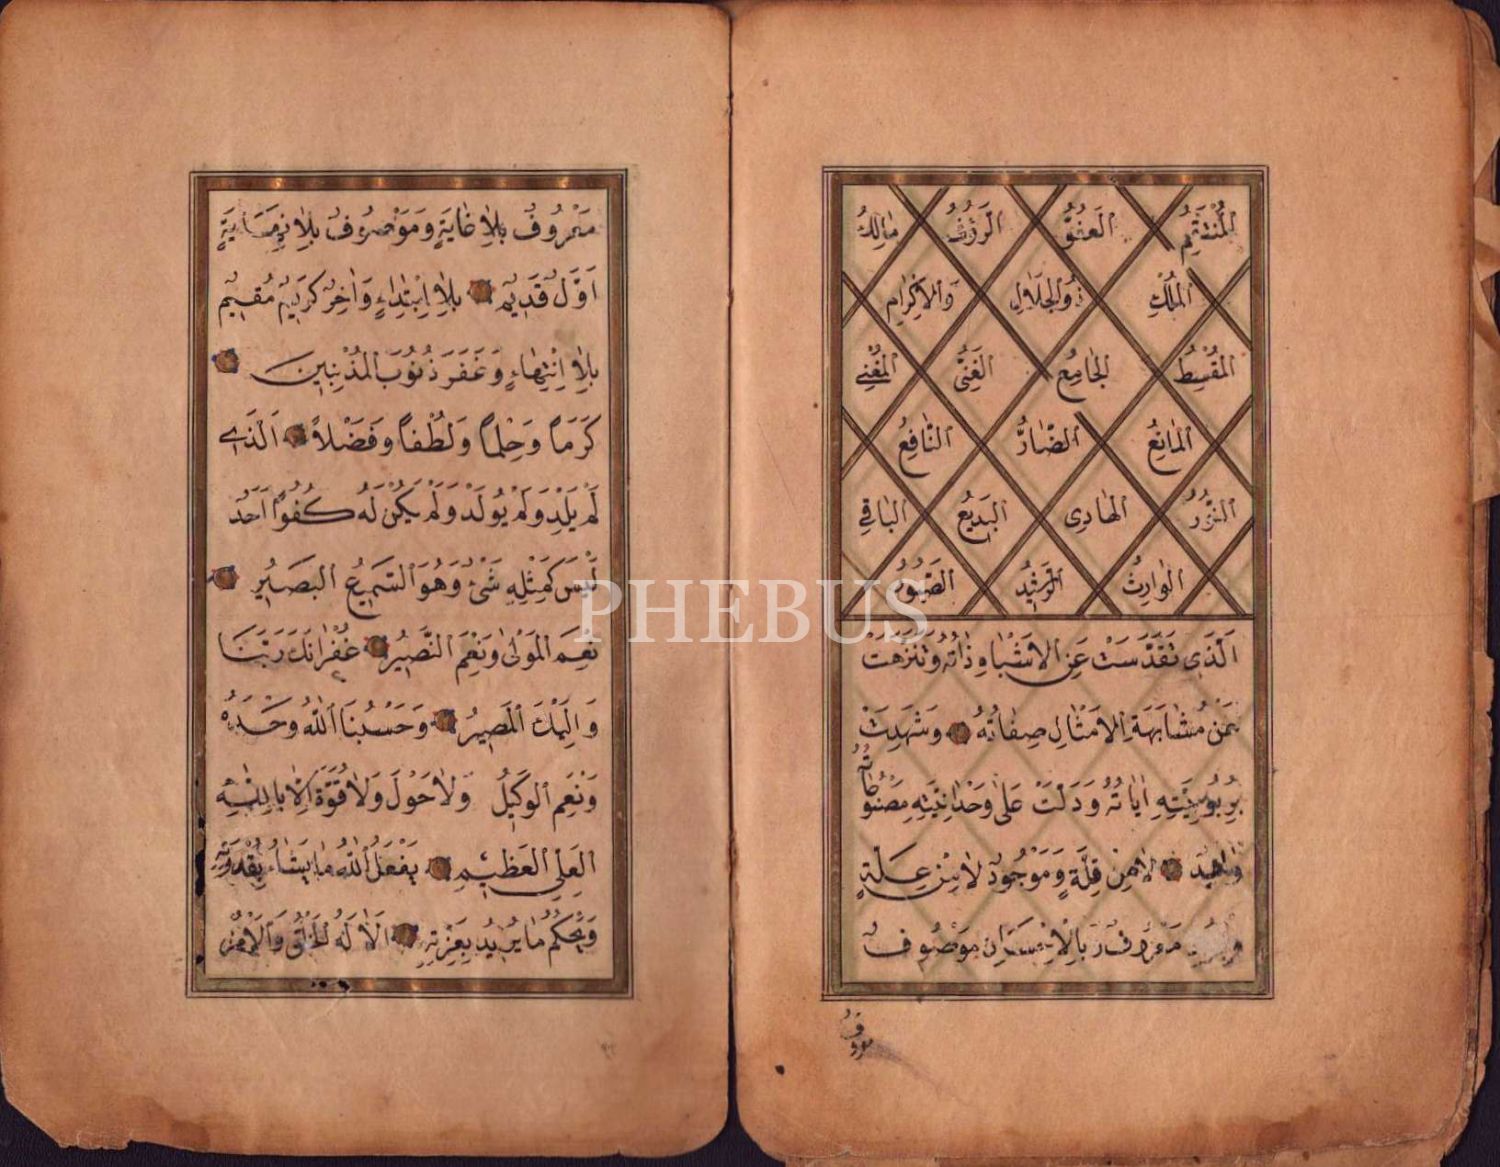 الْمُنْتَقِمُ الْعَفُوُّ الرَّؤُفُ مَالِكُ
الْمُلْكِ ذُو الْجَلَالِ وَالْاِكْرَامِ
الْمُقْسِطُ الْجَامِعُ الْغَنِيُّ الْمُغْنِي
الْمَانِعُ الضَّارُّ النَّافِعُ
النُّورُ الْهَادِي الْبَدِيعُ الْبَاقِي
الْوَارِثُ الرَّشِيدُ الصَّبُورُ
اَلَّذِي تَقَدَّسَتْ عَنِ الْاَشْبَاهِ ذَاتُهُ وَتَنَزَّهَتْ
عَنْ مُشَابَهَةِ الْاَمْثَالِ صِفَاتُهُ وَشَهِدَتْ
بِرُبُوبِيَّتِهِ اٰيَاتُهُ وَدَلَّتْ عَلَى وَحْدَانِيَّتِهِ مَصْنُوعَاتُهُ
وَاحِدٌ لَا مِنْ قِلَّةٍ وَمَوْجُودٌ لَا مِنْ عِلَّةٍ
مَعْرُوفٌ بِالْاِحْسَانِ مَوْصُوفٌ
مَعْرُوفٌ
مَعْرُوفٌ بِلَا غَايَةٍ وَمَوْصُوفٌ بِلَا نِهَايَةٍ
اَوَّلٌ قَدِيمٌ بِلَا اِبْتِدَاءٍ وَاٰخِرٌ كَرِيمٌ مُقِيمٌ
بِلَا اِنْتِهَاءٍ وَغَفَرَ ذُنُوبَ الْمُذْنِبِينَ
كَرَمًا وَحِلْمًا وَلُطْفًا وَفَضْلًا اَلَّذِي
لَمْ يَلِدْ وَلَمْ يُولَدْ وَلَمْ يَكُنْ لَهُ كُفُوًا اَحَدٌ
لَيْسَ كَمِثْلِهِ شَيْءٌ وَهُوَ السَّمِيعُ الْبَصِيرُ
نِعْمَ الْمَوْلٰى وَنِعْمَ النَّصِيرُ غُفْرَانَكَ رَبَّنَا
وَاِلَيْكَ الْمَصِيرُ وَحَسْبُنَا اللّٰهُ وَحْدَهُ
وَنِعْمَ الْوَكِيلُ وَلَا حَوْلَ وَلَا قُوَّةَ اِلَّا بِاللّٰهِ
الْعَلِيِّ الْعَظِيمِ يَفْعَلُ اللّٰهُ مَا يَشَاءُ بِقُدْرَتِهِ
وَيَحْكُمُ مَا يُرِيدُ بِعِزَّتِهِ اَلَا لَهُ الْخَلْقُ وَالْاَمْرُ
PHEBUS